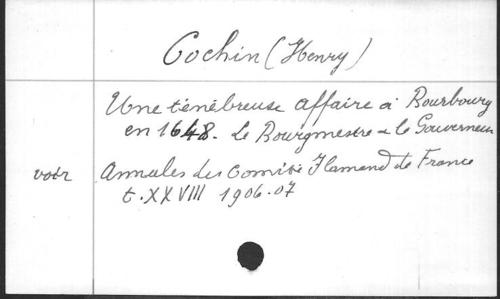 Cochin (Henry)
Une ténébreuse affaire à Bourbourg
en 1648. Le Bourgmestre & le Gouverneur
voir Annales du Comité Flamand de France
t. XXVIII 1906-07